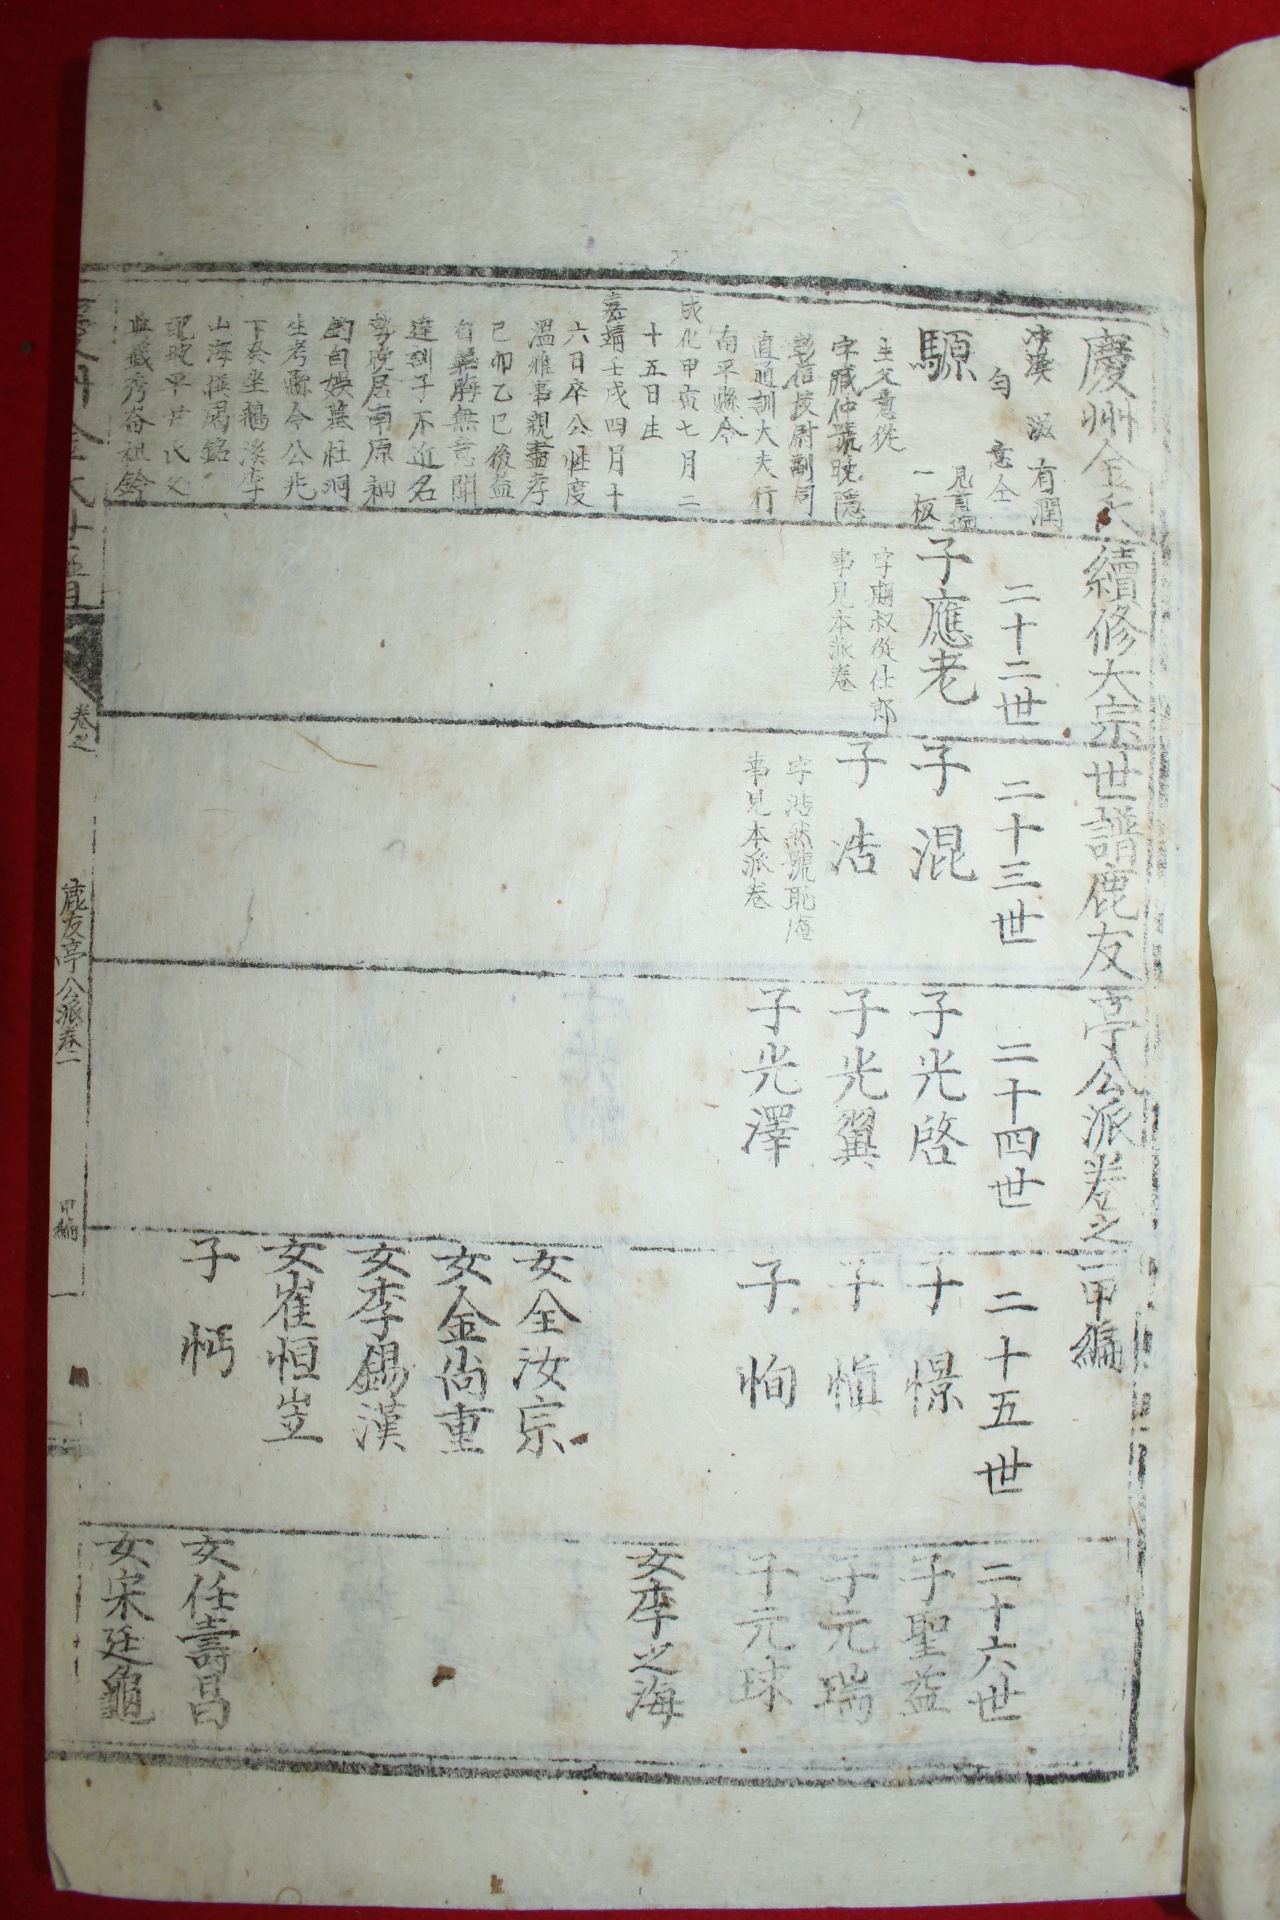 慶州金氏續修大宗世譜鹿友亭公派卷之一甲編
二十二世
二十三世
二十四世
二十五世
二十六世
有潤
一板
生父意從
字臧仲號晚隱
彰信校尉副司
直通訓大夫行
南平縣令
成化甲寅七月二
十五日生
嘉靖壬戌四月十
六日卒公恇度
溫雅事親盡孝
己卯乙巳後益
自韜晦無意聞
達訓子不近名
勢晚居南原
生考縣令公兆
下癸坐鵝溪李
山海撰碣銘
配咸平尹氏父
子應老
字期叔從仕郎
事見本派卷
子混
子浩
字浩然號恥庵
事見本派卷
子光啓
子光翼
子光澤
子憬
子愼
子恂
女全汝宗
女金尙重
女李錫漢
女崔恒岦
子㤓
子聖益
子元瑞
子元球
女李之海
女任壽昌
女宋廷龜
慶州金氏世譜
卷之
鹿友亭公派卷一
甲編
一